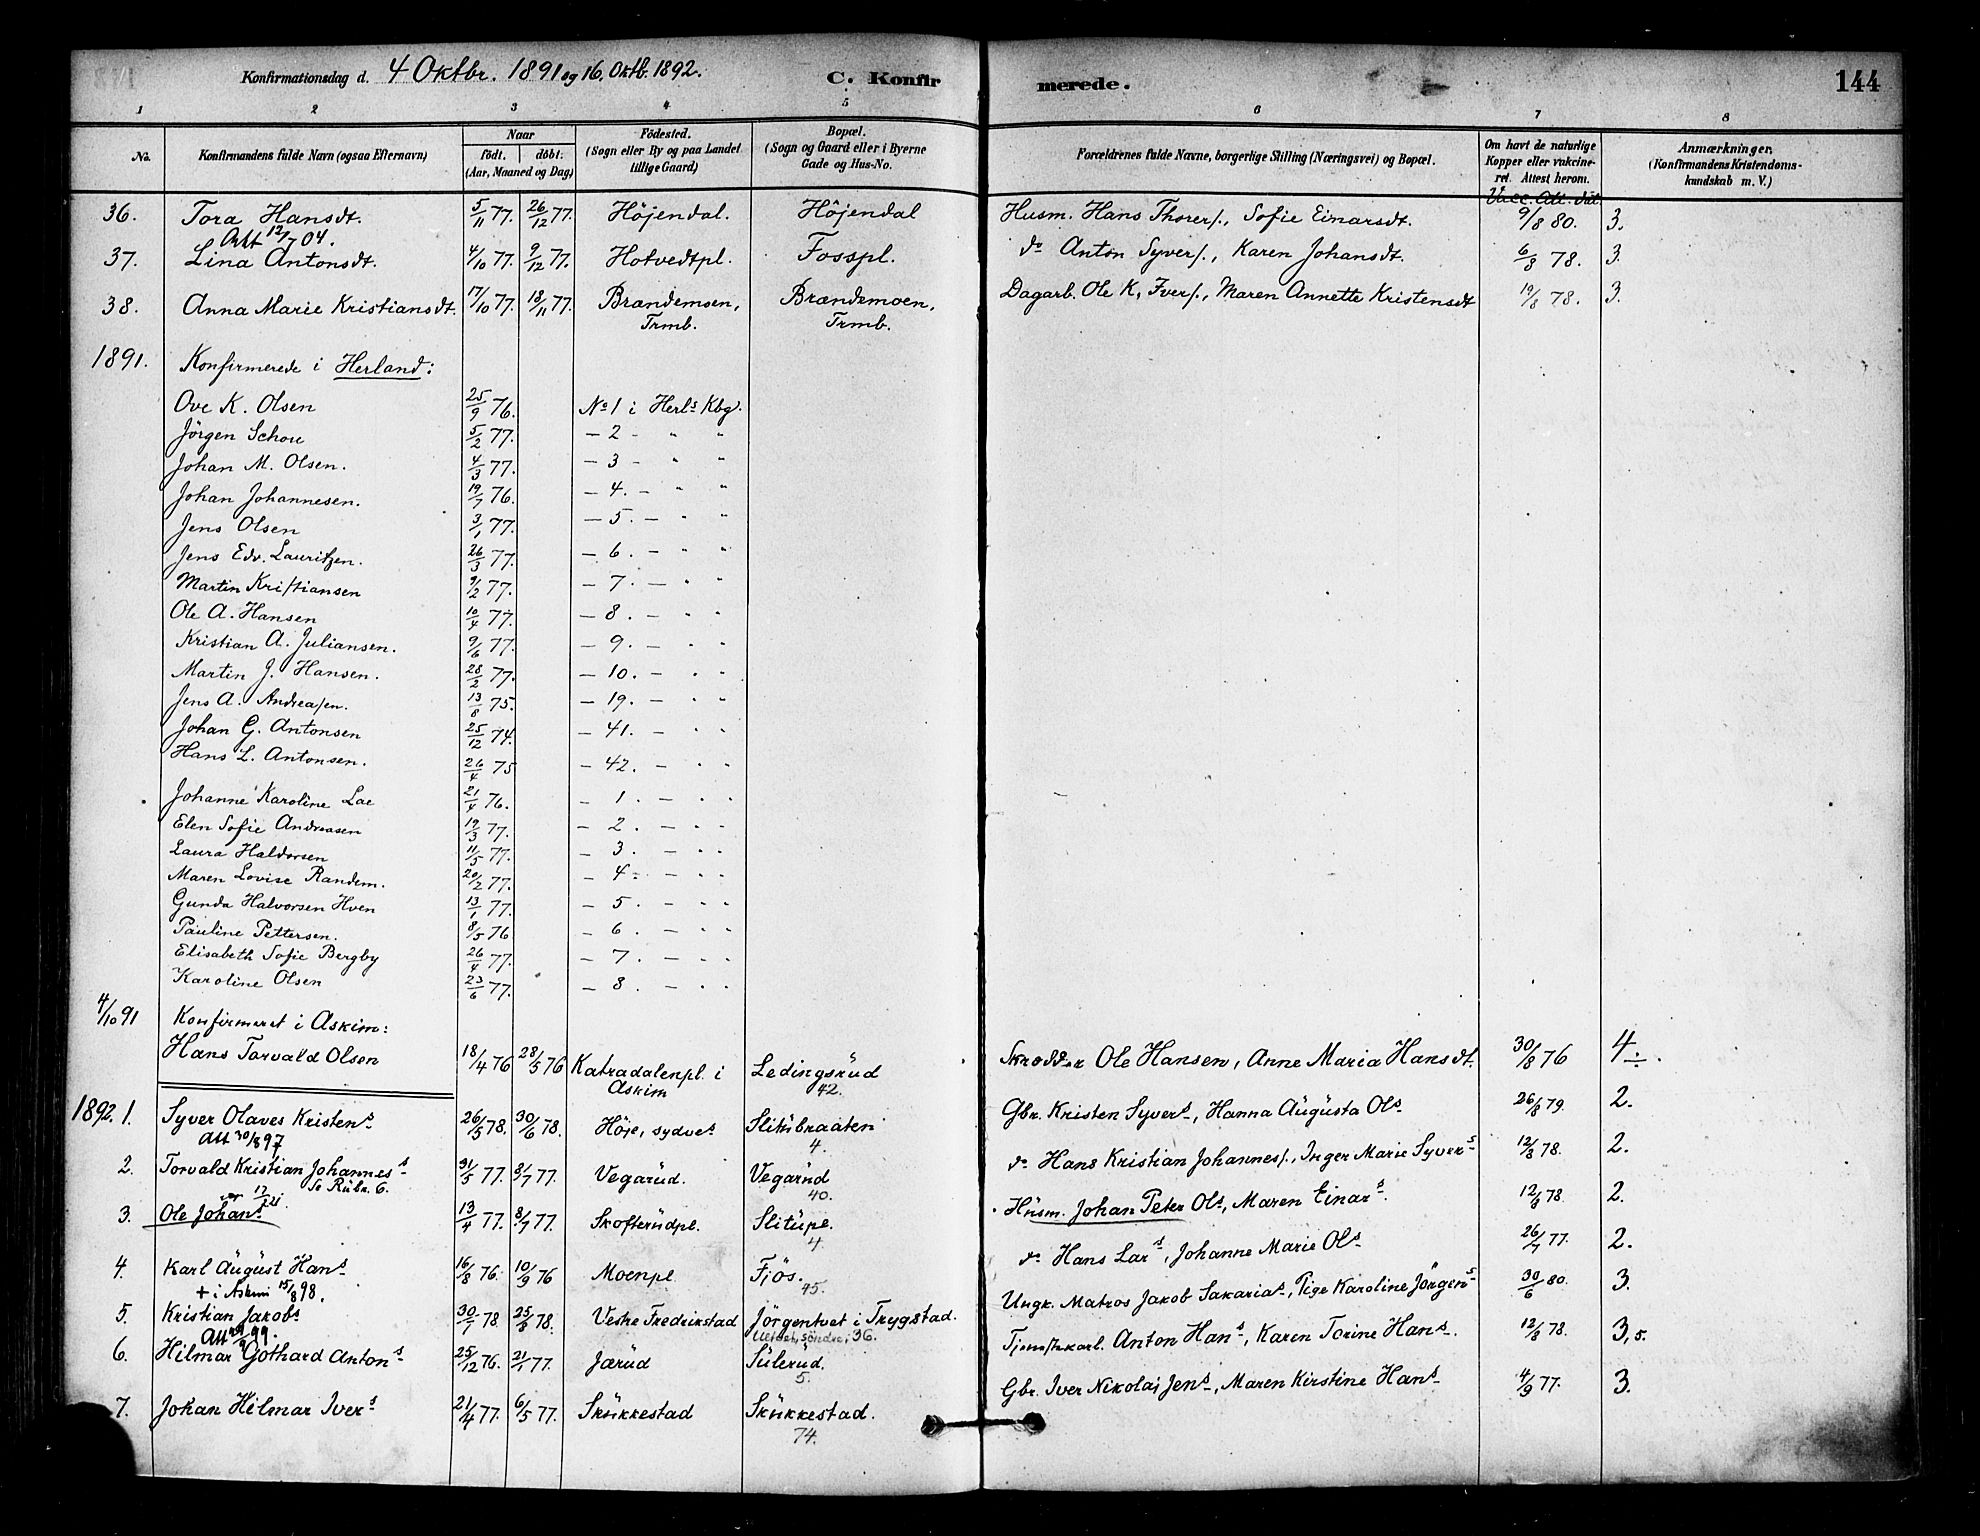 Konfirmationsdag d. 4 Oktbr. 1891 og 16, Oktb. 1892. C. Konfirmerede. 144
1 2 3 4 5 6 7 8
No. Konfirmandens fulde Navn (ogsaa Efternavn) Naar födt. döbt. (Aar, Maaned og Dag) Födested. (Sogn eller By og paa Landet tillige Gaard) Bopæl. (Sogn og Gaard eller i Byerne Gade og Hus-No. Forældrenes fulde Navne, borgerlige Stilling (Næringsvei) og Bopæl. Om havt de naturlige Kopper eller vakcineret. Attest herom. Anmærkninger. (Konfirmandens Kristendomskundskab m. V.)
Vacc. Att. dat.
36. Tora Hansdt. 5/11 77. 26/12 77. Höjendal. Höjendal Husm. Hans Thorers., Sofie Einarsdt. 9/8 80. 3.
Att 12/7 04.
37. Lina Antonsdt. 4/10 77. 9/12 77. Hotvedtpl. Fosspl. do Anton Syvers., Karen Johansdt. 6/8 78. 3.
38. Anna Marie Kristiansdt. 17/10 77. 18/11 77. Brændemoen, Trmb. Brændemoen, Trmb. Dagarb. Ole K. Ivers., Maren Annette Kristensdt 19/8 78. 3.
1891. Konfirmerede i Herland:
Ove K. Olsen 25/9 76. No 1 i Herls Kbg.
Jörgen Schou 5/2 77. - 2 - " "
Johan M. Olsen. 4/3 77. - 3 - " "
Johan Johannesen. 19/7 76. - 4. - " "
Jens Olsen 3/1 77. - 5. - " "
Jens Edv. Lauritzen. 26/3 77. - 6. - " "
Martin Kristiansen 9/2 77. - 7. - " "
Ole A. Hansen 10/4 77. - 8. - " "
Kristian A. Juliansen. 9/6 77. - 9. - " "
Martin J. Hansen. 28/2 77. - 10. - " "
Jens A. Andreasen. 13/8 75. - 19. - " "
Johan G. Antonsen 25/12 74. - 41. - " "
Hans L. Antonsen. 26/4 75 - 42. - " "
Johanne Karoline Lae 21/4 76. - 1. - " "
Elen Sofie Andreasen 19/3 77. - 2. - " "
Laura Haldorsen 11/5 77. - 3. - " "
Maren Lovise Randem. 20/2 77. - 4. - " "
Gunda Halvorsen Hven 13/1 77. - 5. - " "
Pauline Pettersen. 8/5 76 - 6. - " "
Elisabeth Sofie Bergby 26/4 77. - 7. - " "
Karoline Olsen 23/6 77. - 8. - " "
4/10 91 Konfirmeret i Askim:
Hans Torvald Olsen 18/4 76 28/5 76 Katradalenpl. i Askim Ledingsrud 42. Skrædder Ole Hansen, Anne Maria Hansdt. 30/8 76 4÷.
1892. 1. Syver Olaves Kristens 26/5 78. 30/6 78. Höje, sydves Slitubraaten 4. Gbr. Kristen Syvers, Hanna Augusta Ols 26/8 79. 2.
Att 30/8 97
2. Torvald Kristian Johannes 31/5 77. 8/7 77. Vegarud. Vegarud 40. do Hans Kristian Johannes., Inger Marie Syvers 12/8 78. 2.
Se Rubr. 6.
3. Ole Johans 13/4 77. 8/7 77. Skofterudpl. Slitupl. 4. Husm. Johan Peter Ols, Maren Einars. 12/8 78. 2.
4. Karl August Hans 16/8 76. 10/9 76 Moenpl Fjös. 45. do Hans Lars, Johanne Marie Ols 26/7 77. 2.
+ i Askim 15/8 98.
5. Kristian Jakobs 30/1 78. 25/8 78. Vestre Fredrikstad Jörgentvet i Trygstad. Ungk. Matros Jakob Sakarias, Pige Karoline Jörgens 30/6 80. 3.
6. Hilmar Gothard Antons 25/12 76. 21/1 77. Jarud Sulerud. 5. Tjenestekarl. Anton Hans, Karen Torine Hans. 12/8 78. 3,5.
7. Johan Hilmar Ivers 21/4 77. 6/5 77. Skukkestad Skukkestad. 74. Gbr. Iver Nikolai Jens, Maren Kirstine Hans 4/9 77. 3.